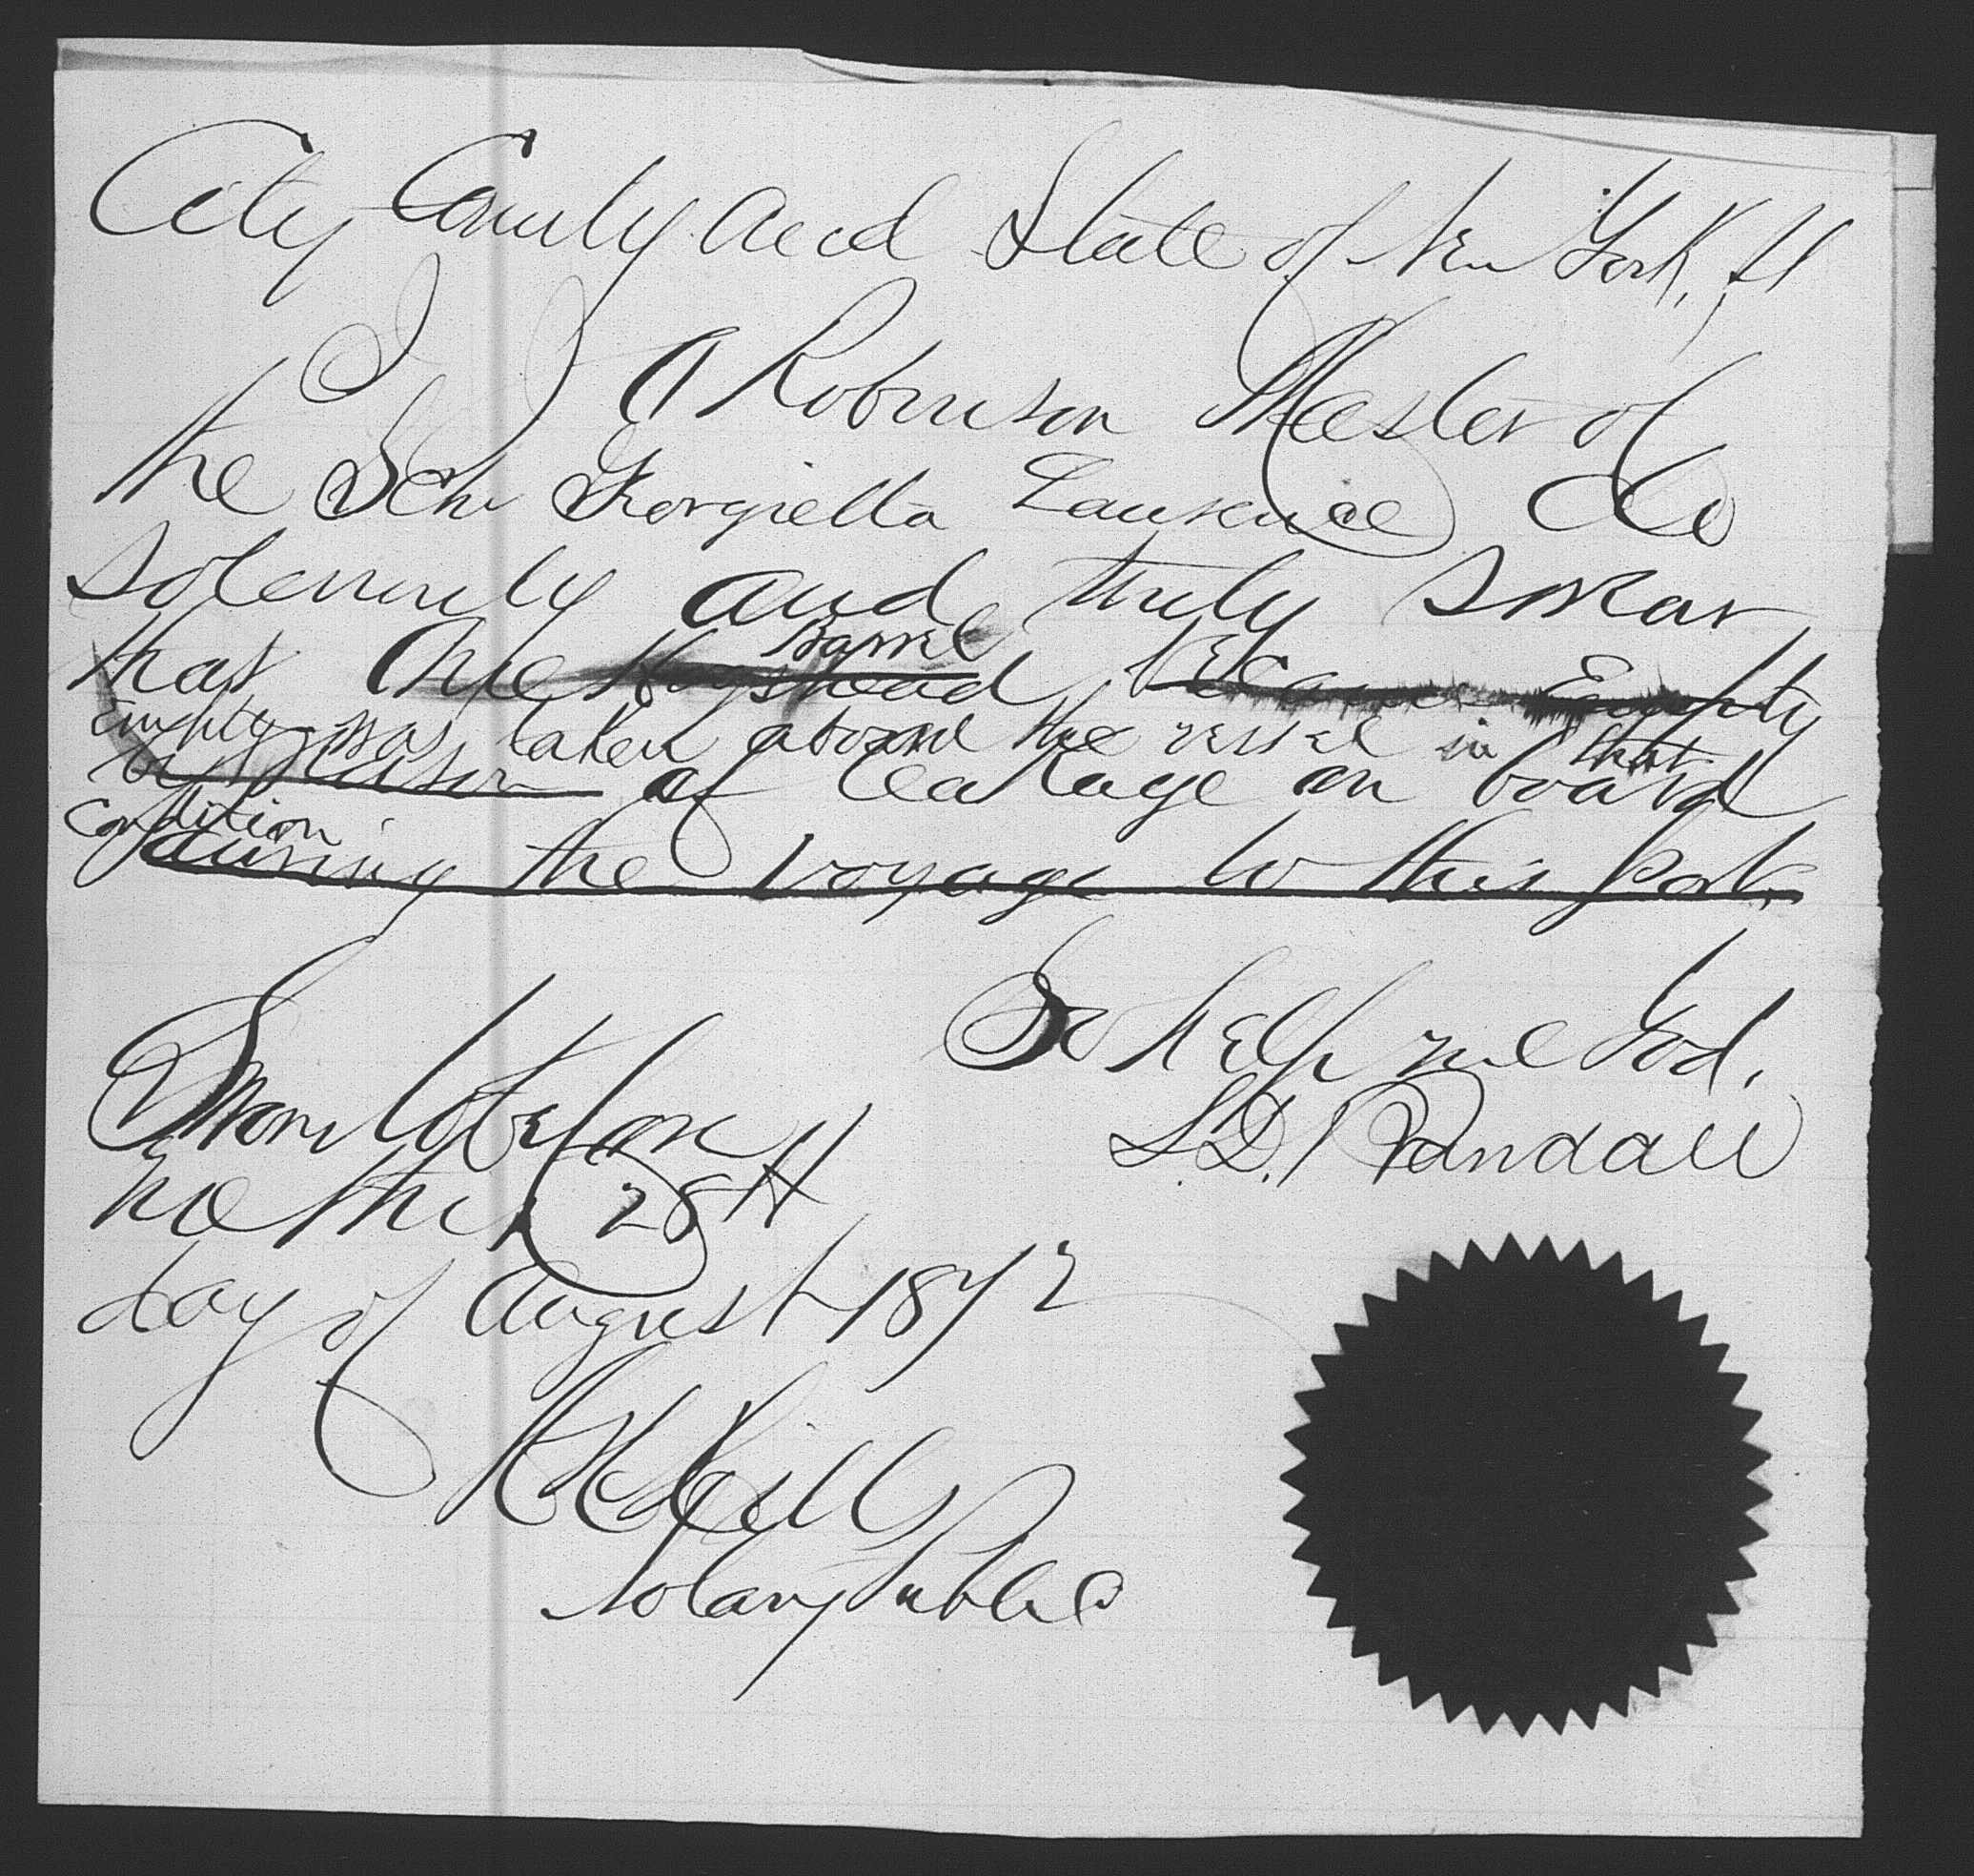 City County and State of New York, SS
I J A Robinson Master of
the Schr Georgietta Laurence do
solemnly and truly swear
Barrel
that One Hogshead became Empty
empty was taken aboard the vessel in that
by reason of leakage on board
condition
during the voyage to this Port.
So help me God.
Sworn before
L.D. Randall
me this 28th
day of August 1872
Notary Public